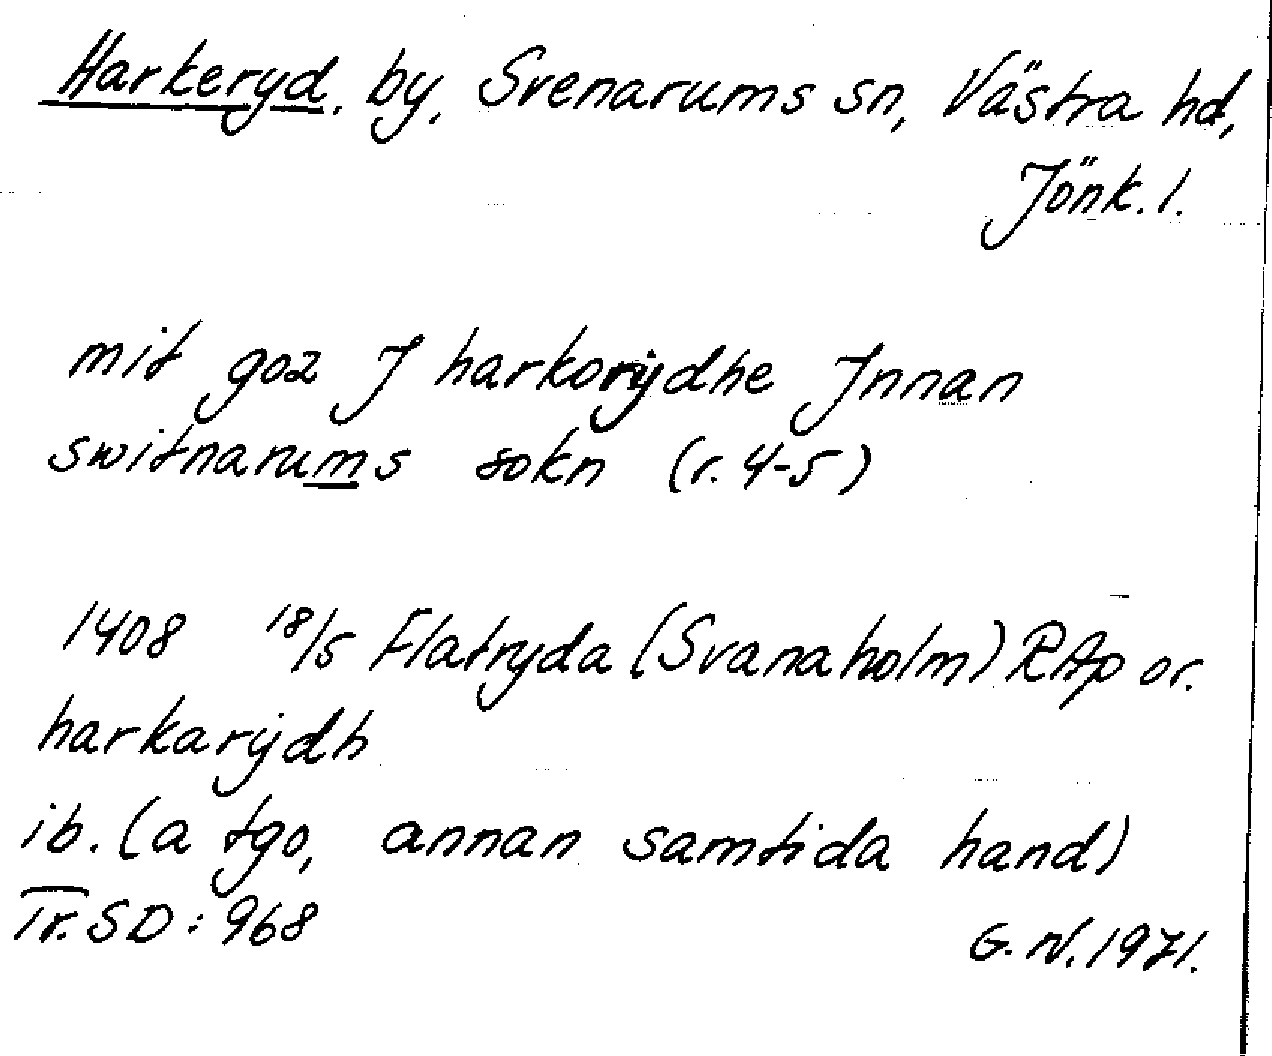 Harkeryd. by, Svenarums sn, Västra hd,
Jönk. l.
mit goz J harkorÿdhe Jnnan
switnarums sokn (r. 4-5)
1408 18/5 Flatryda (Svanaholm) RAp or.
harkarÿdh
ib. (a tgo, annan samtida hand)
Tr. SD: 968
G. N. 1971.